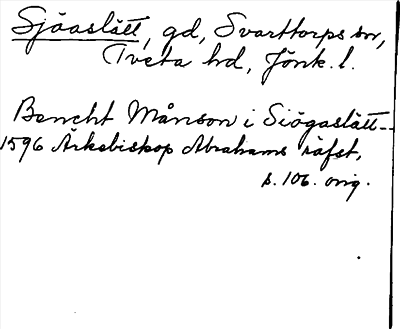 Sjöaslätt, gd, Svarttorps sn,
Tveta hd, Jönk. l.
Bencht Månson i Siögaslätt--
1596 Ärkebiskop Abrahams räfst,
s. 106. orig.